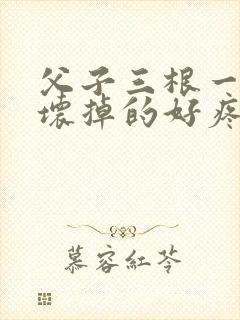 父子三根一
壞掉的好疼
慕容紅苓